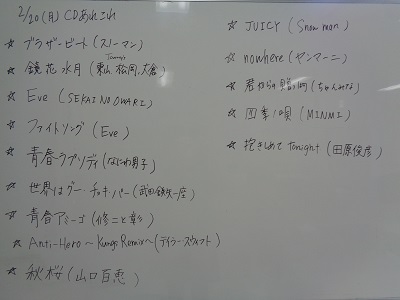 2/20(月) CDあれこれ
☆ ブラザービート(スノーマン)
☆ 鏡花水月(東山、松岡、大倉)
☆ Eve (SEKAI NO OWARI)
☆ ファイトソング(Eve)
☆ 青春ラプソディ(なにわ男子)
☆ 世界はグー・チョキ・パー(武田鉄矢一座)
☆ 青春アミーゴ(修二と彰)
☆ Anti-Hero〜Kungs Remix〜(テイラースウィフト)
☆ 秋桜(山口百恵)
☆ JUICY (Snow man)
☆ nowhere(ヤンマーニ)
☆ 君からの贈り物(ちゃんみな)
☆ 四季ノ唄(MINMI)
☆ 抱きしめてTonight(田原俊彦)